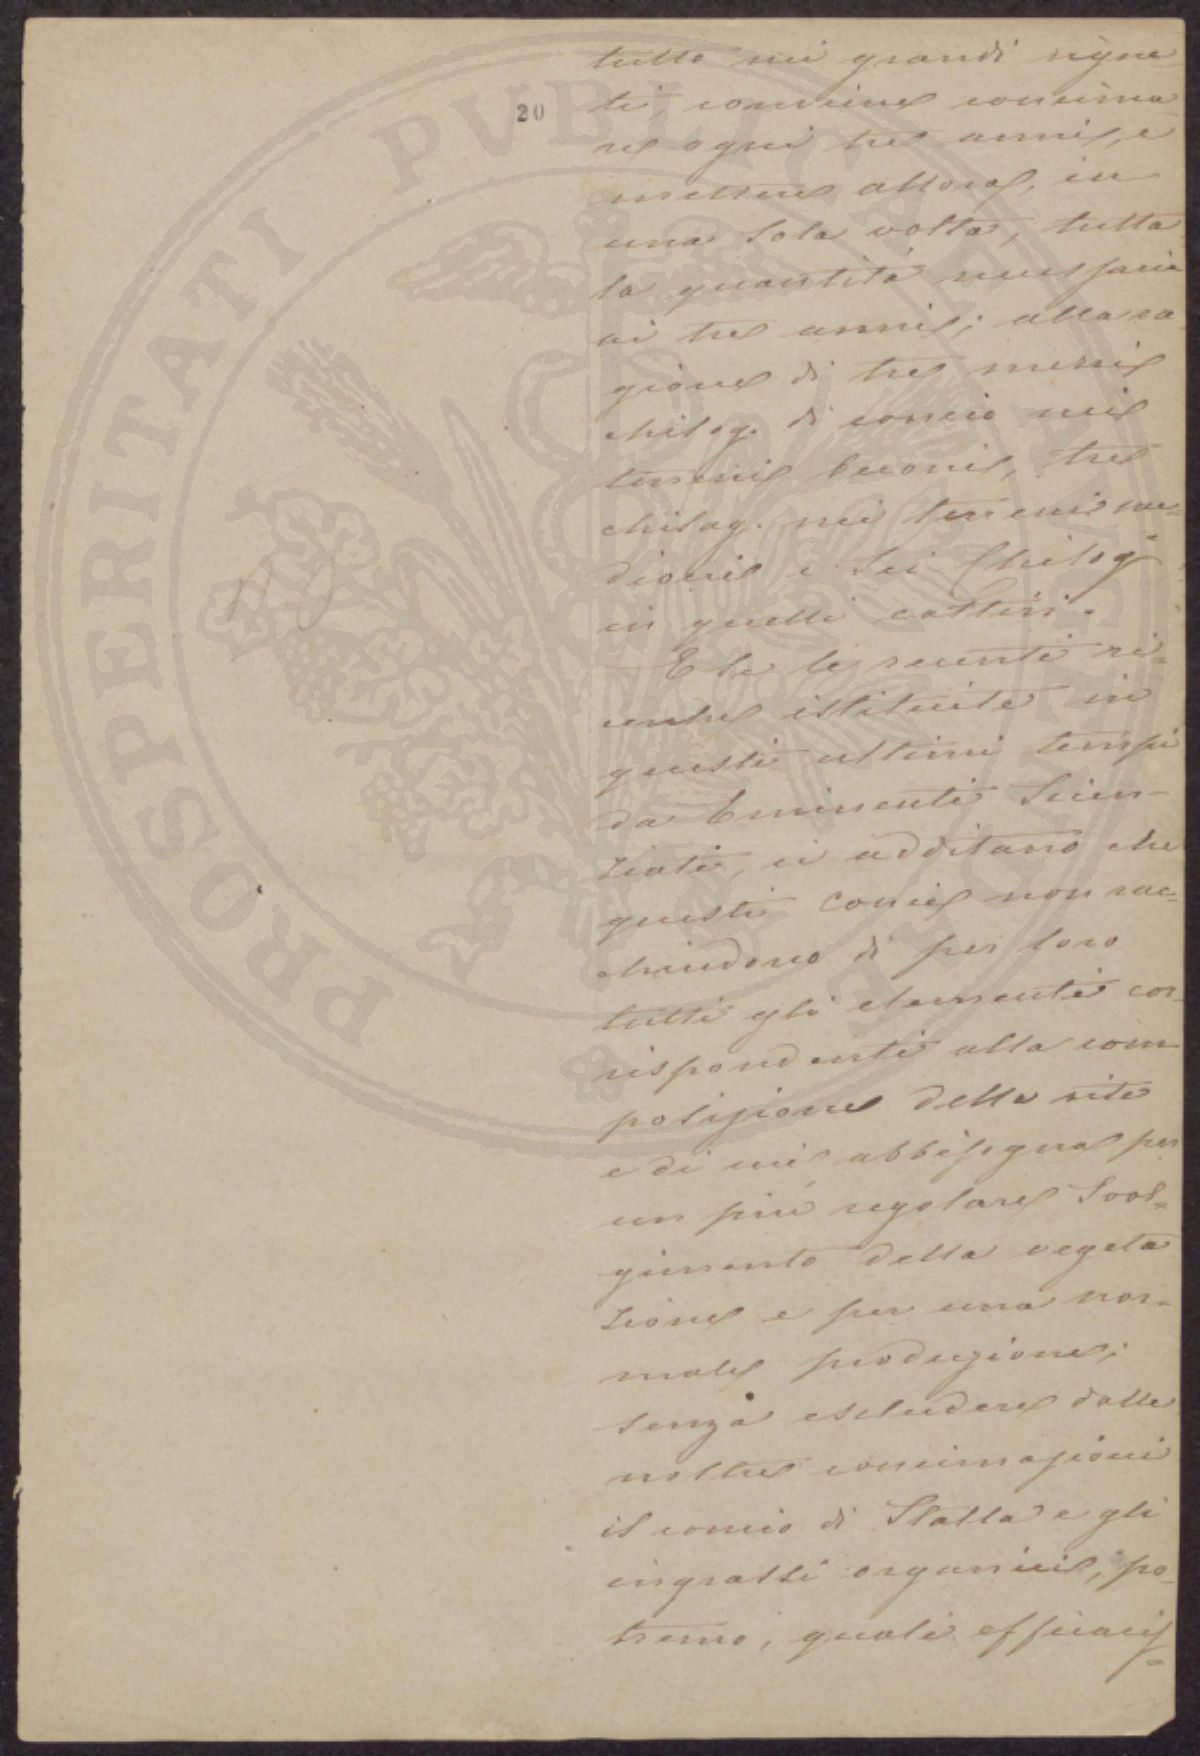 20
tutto nei grandi vigne
ti, conviene concima
re ogni tre anni, e
mettere allora, in
una sola volta, tutta
la quantità necessaria
ai tre anni; alla ra
gione di tre mezzi
chilog. di concio nei
terreni buoni, tre
chilog. nei terreni me=
diocri e sei Chilog.
in quelli cattivi.
E se le recenti ri=
cerche istituite in
questi ultimi tempi
da Eminenti Scien-
ziati, ci additano che
questi conci non rac=
chiudono di per loro
tutti gli elementi cor-
rispondenti alla com
posizione della vite
e di cui abbisogna per
un più regolare svol=
gimento della vegeta
zione e per una nor=
male produzione;
senza escludere dalle
nostre concimazioni
il concio di Stalla e gli
ingrassi organici, po
tremo, quali efficacis=
PROSPERITATI PVBLICAE